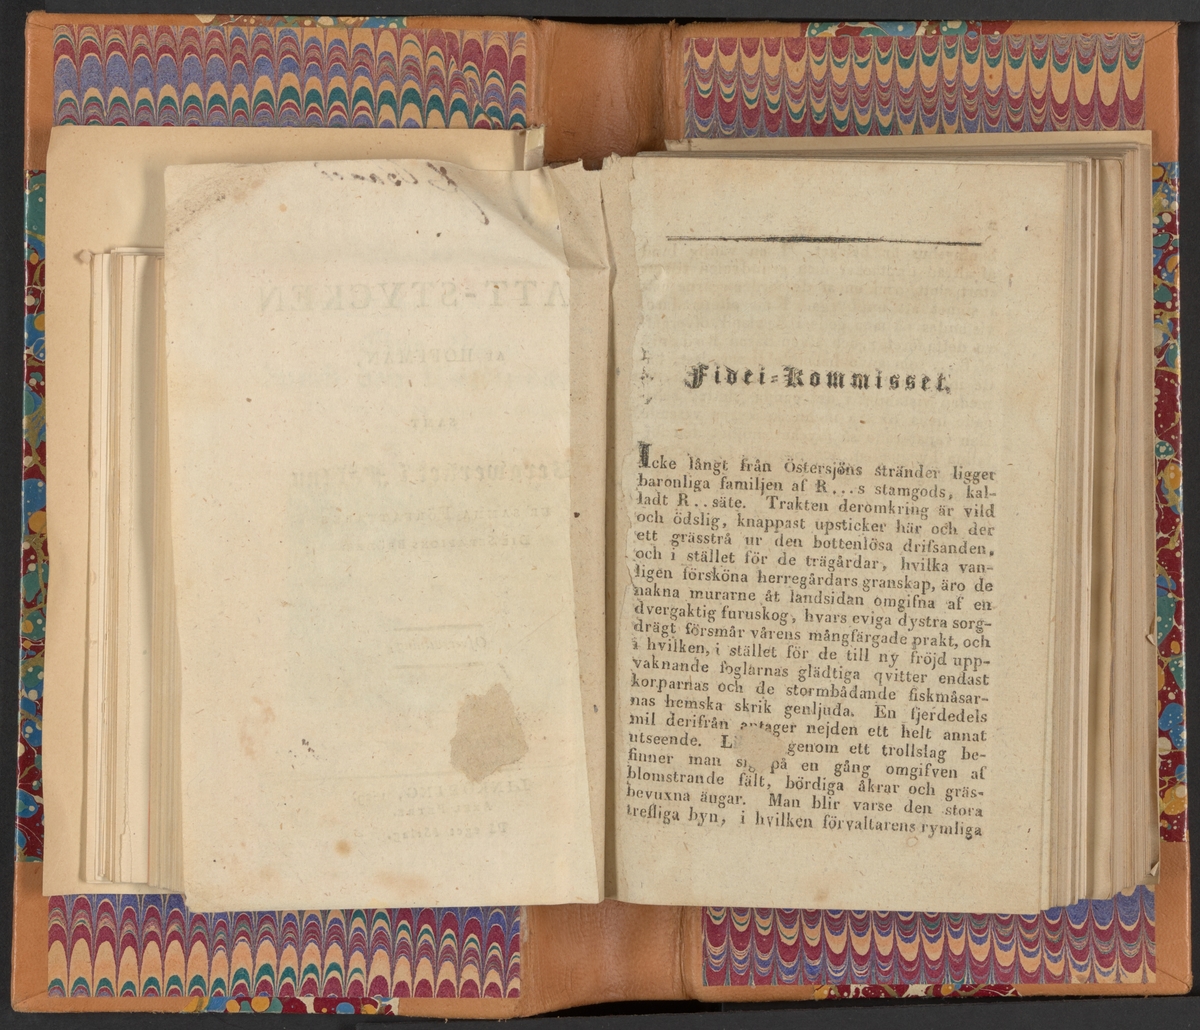 Fidei-Kommisset.
Icke långt från Östersjöns stränder ligger
baronliga familjen af R...s stamgods, kal-
ladt R..säte. Trakten deromkring är vild
och ödslig, knappast upsticker här och der
ett grässtrå ur den bottenlösa drifsanden,
och i stället för de trägårdar, hvilka van-
ligen försköna herregårdars granskap, äro de
nakna murarne åt landsidan omgifna af en
dvergaktig furuskog, hvars eviga dystra sorg-
drägt försmår vårens mångfärgade prakt, och
i hvilken, i stället för de till ny fröjd upp-
vaknande foglarnas glädtiga qvitter endast
korparnas och de stormbådande fiskmåsar-
nas hemska skrik genljuda. En fjerdedels
mil derifrån antager nejden ett helt annat
utseende. genom ett trollslag be-
finner man sig på en gång omgifven af
blomstrande fält, bördiga åkrar och gräs-
bevuxna ängar. Man blir varse den stora
trefliga byn, i hvilken förvaltarens rymliga